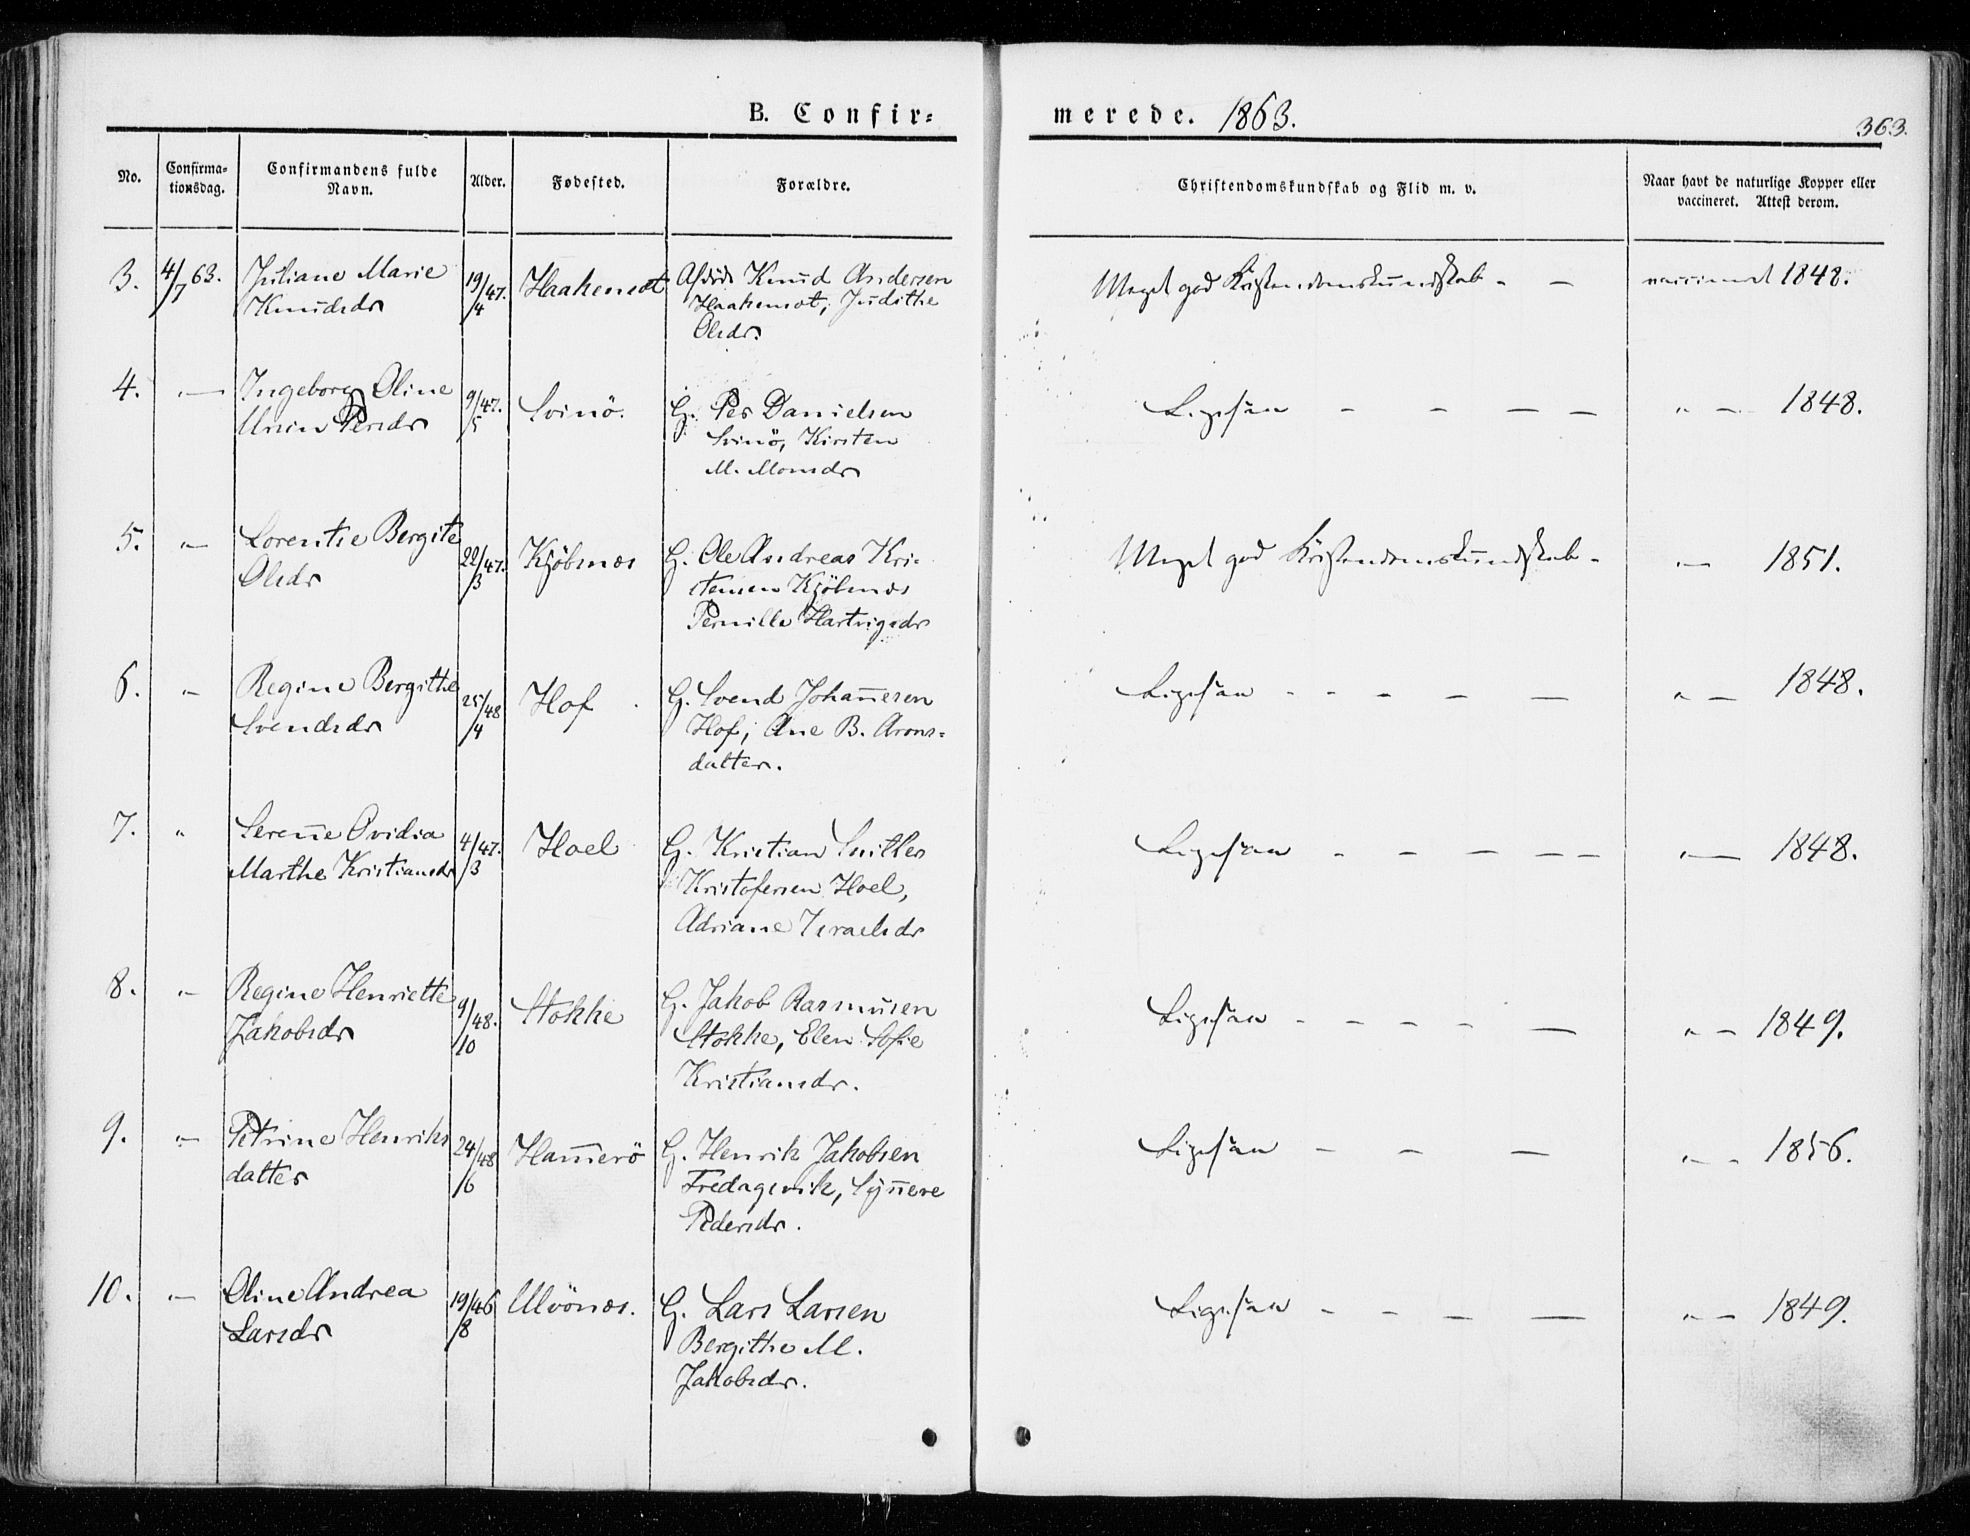 B. Confir=
merede. 1863.
363.
No.
Confirma-
tionsdag.
Confirmandens fulde
Navn.
Alder.
Fødested.
Forældre.
Christendomskundskab og Flid m. v.
Naar havt de naturlige Kopper eller
vaccineret. Attest derom.
3. 4/7 63. Juliane Marie 19/4 47. Haakenset Afdøde Knud Andersen Meget god Kristendomskundskab - — vaccineret 1848.
Knudsdr Haakenset, Judithe
Olsdr.
4. " — Ingeborg Oline 9/5 47. Svinö. G. Per Danielsen Ligesaa - - — — " — 1848.
Persdr Svinö, Kirsten
M. Monsdr
5. " — Lorentse Bergite 22/3 47. Kjöbnæs G. Ole Andreas Kri- Meget god Kristendomskundskab - " — 1851.
Olsdr stensen Kjöbnæs
Pernille Hartvigsdr
6. " — Regine Bergithe 25/4 48 Hof G. Svend Johan̄esen Ligesaa - - - — — " — 1848.
Svendsdr Hof, Ane B. Arons=
datter.
7. " Seren̄e Ovidia 4/3 47. Hoel G. Kristian Ligesaa - - — — — " — 1848.
Marthe Kristiansdr Kristofersen Hoel,
Adriane Israelsdr
8. " — Regine Henriette 9/10 48. Stokke G. Jakob Rasmusen Ligesaa - - - - — " — 1849.
Jakobsdr Stokke, Elen Sofie
Kristiansdr.
9. " — Petrine Henriks 24/6 48 Ham̄erö G. Henrik Jakobsen Ligesaa - - — " — 1856.
datter Fredagsvik, Syn̄eve
Pedersdr.
10. " — Oline Andrea 19/8 46 Ulvönæs. G. Lars Larsen Ligesaa - - — — " — 1849.
Larsdr Bergithe M.
Jakobsdr.